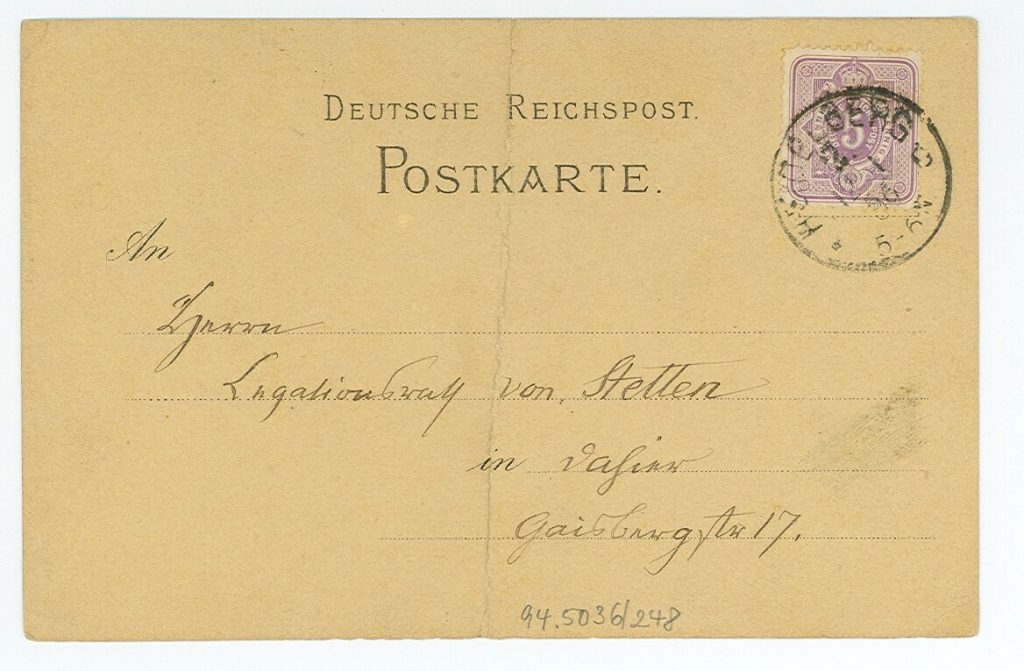 DEUTSCHE REICHSPOST.
POSTKARTE.
HEIDELBERG
5-6N
5
An
Herrn
Legationsrath von Stetten
in dahier
Gaisbergstr 17.
94.5036/248